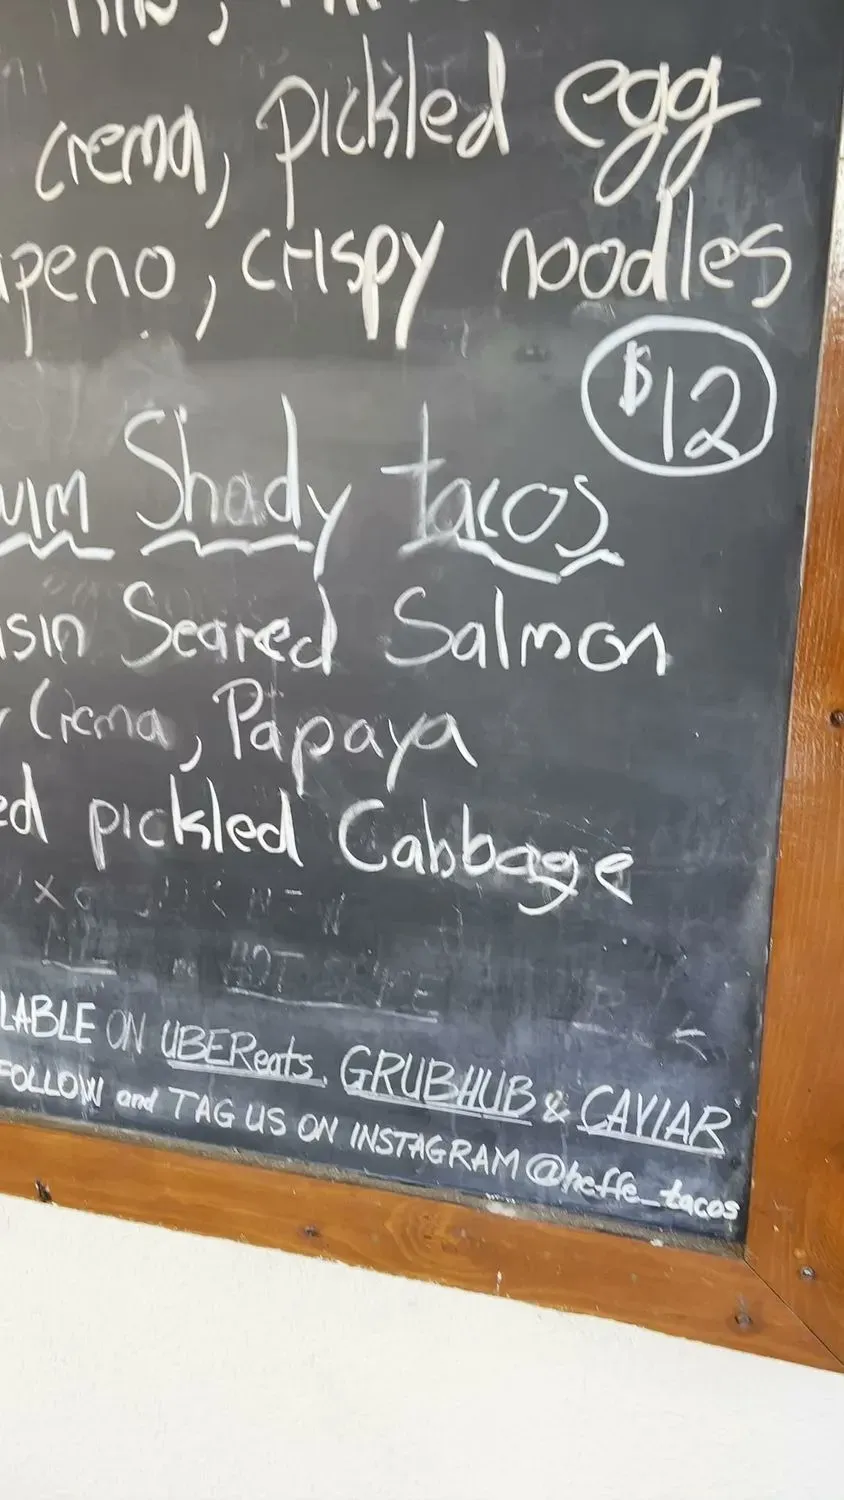 crema, pickled egg
apeno, crispy noodles
$12
uim Shady tacos
isin Seared Salmon
r Crema, Papaya
ed pickled Cabbage
LABLE ON UBEReats, GRUBHUB & CAVIAR
FOLLOW and TAG US ON INSTAGRAM @heffe_tacos